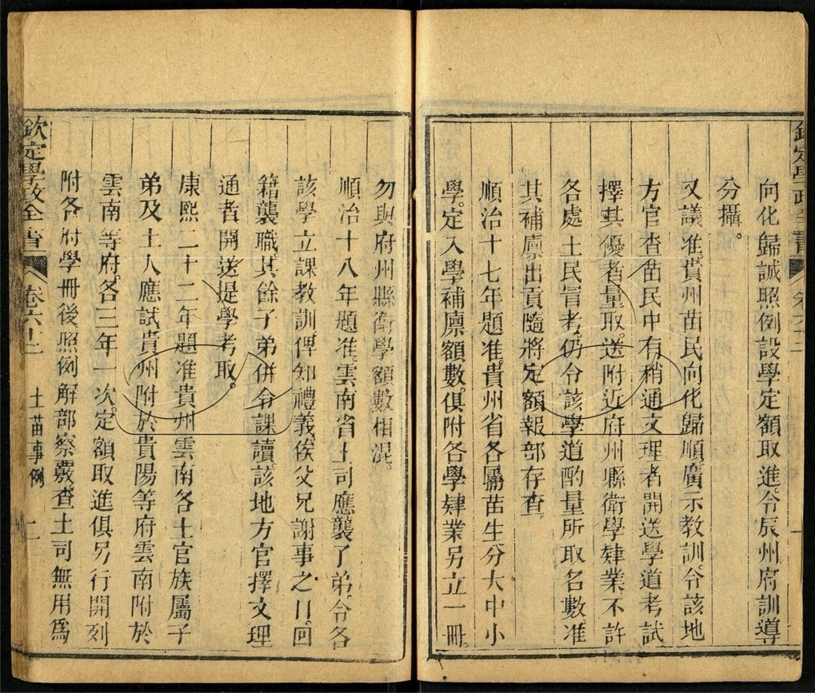 向化歸誠照例設學定額取進令辰州府訓導
分攝。
又議准貴州苗民向化歸順廣示教訓令該地
方官查苗民中有稍通文理者開送學道考試
擇其優者量取送附近府州縣衛學肄業不許
各處土民冒考仍令該學道酌量所取名數准
其補廩出貢隨將定額報部存查
順治十七年題准貴州省各屬苗生分大中小
學。定入學補廩額數。俱附各學肄業另立一冊。
勿與府州縣衛學額數相混。
順治十八年題准。雲南省土司應襲子弟。令各
該學立課教訓俾知禮義。俟父兄謝事之日。回
籍襲職。其餘子弟併令課讀該地方官擇文理
通者開送提學考取。
康熙二十二年題准貴州雲南各土官族屬子
弟及土人應試貴州附於貴陽等府雲南附於
雲南等府。各三年一次。定額取進俱另行開列
附各府學冊後照例解部察覈查土司無用爲
欽定學政全書 卷六十二 土苗事例 二